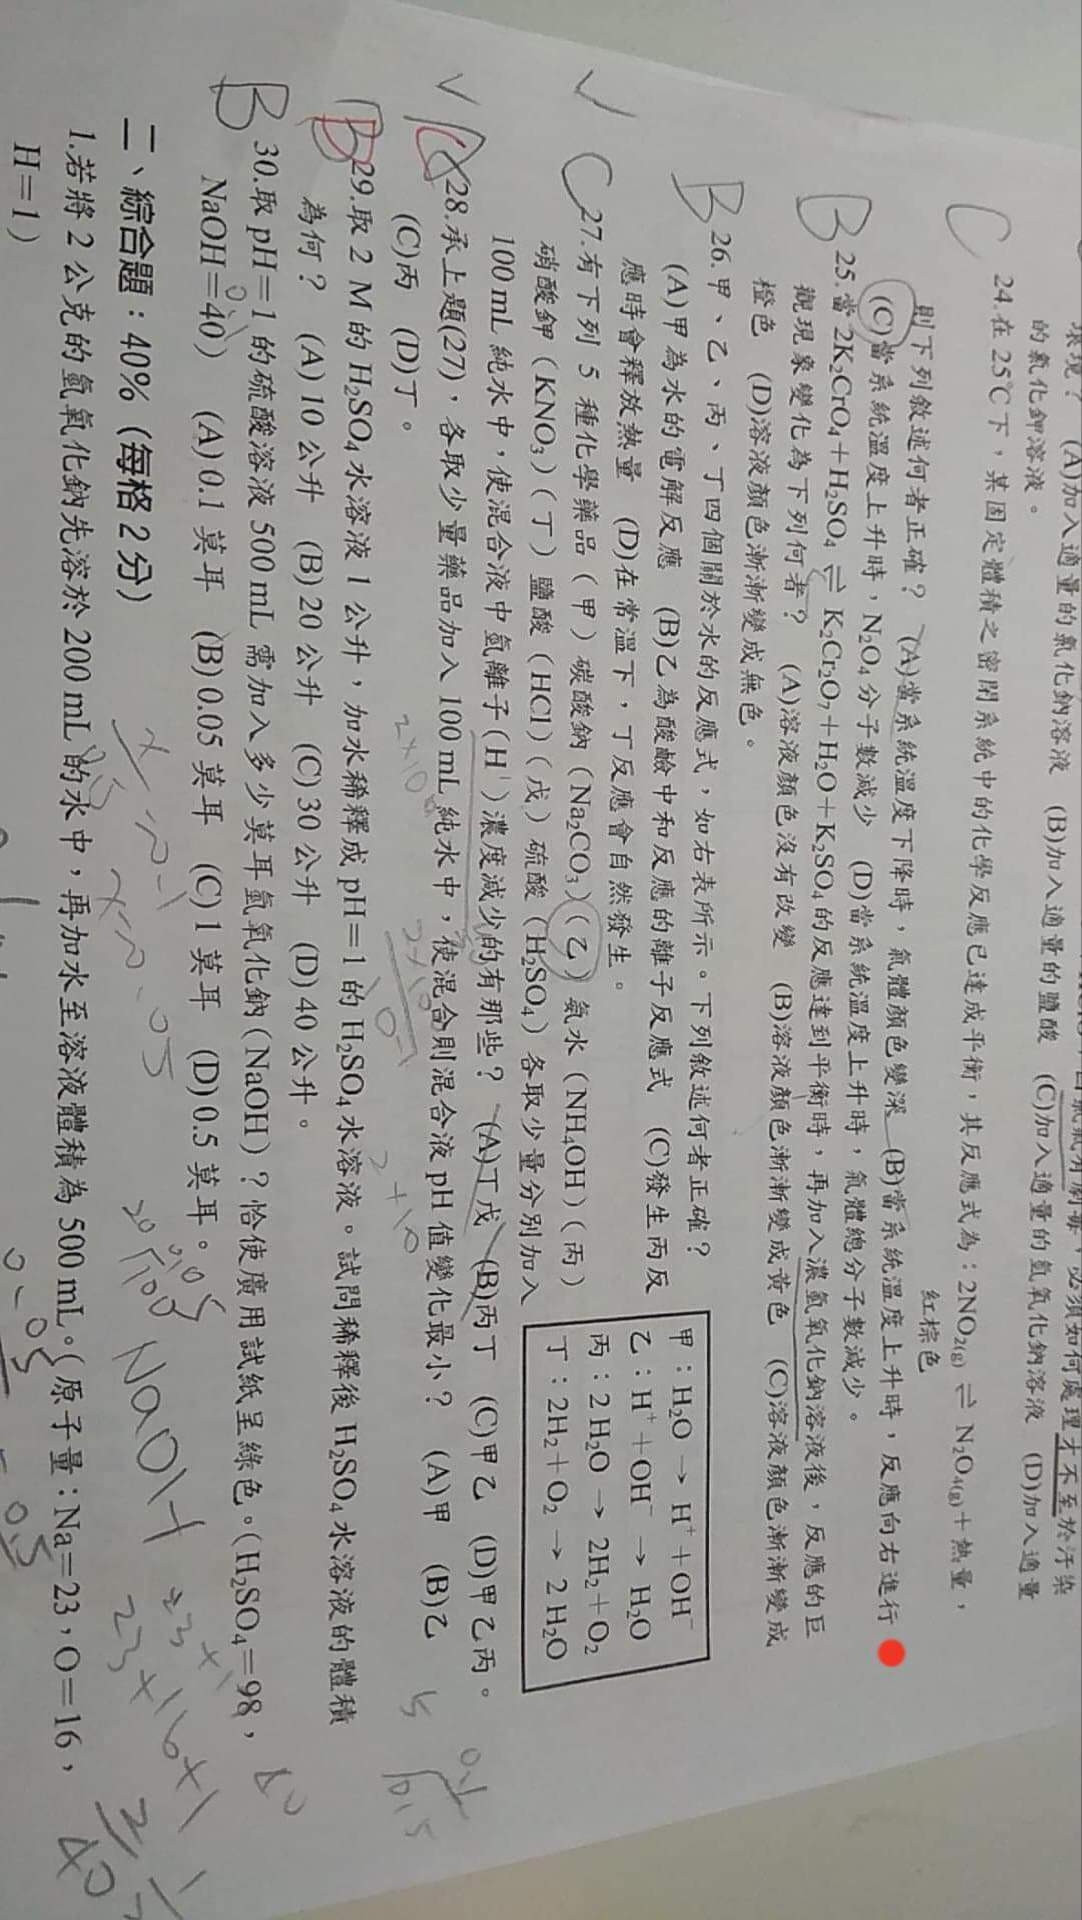 環境? (A)加入適量的氯化鈉溶液 (B)加入適量的鹽酸 (C)加入適量的氫氧化鈉溶液 (D)加入適量
的氯化鉀溶液。
C 24.在25℃下,某固定體積之密閉系統中的化學反應已達成平衡,其反應式為:2NO₂(g) ⇌ N₂O₄(g)+熱量,
紅棕色
則下列敘述何者正確? (A)當系統溫度下降時,氣體顏色變深 (B)當系統溫度上升時,反應向右進行
(C)當系統溫度上升時,N₂O₄分子數減少 (D)當系統溫度上升時,氣體總分子數減少。
B 25.當2K₂CrO₄+H₂SO₄ ⇌ K₂Cr₂O₇+H₂O+K₂SO₄的反應達到平衡時,再加入濃氫氧化鈉溶液後,反應的巨
觀現象變化為下列何者? (A)溶液顏色沒有改變 (B)溶液顏色漸漸變成黃色 (C)溶液顏色漸漸變成
橙色 (D)溶液顏色漸漸變成無色。
B 26.甲、乙、丙、丁四個關於水的反應式,如右表所示。下列敘述何者正確?
(A)甲為水的電解反應 (B)乙為酸鹼中和反應的離子反應式 (C)發生丙反
應時會釋放熱量 (D)在常溫下,丁反應會自然發生。
甲:H₂O → H⁺+OH⁻
乙:H⁺+OH⁻ → H₂O
丙:2 H₂O → 2H₂+O₂
丁:2H₂+O₂ → 2 H₂O
C 27.有下列5種化學藥品(甲)碳酸鈉(Na₂CO₃)(乙)氨水(NH₄OH)(丙)
硝酸鉀(KNO₃)(丁)鹽酸(HCl)(戊)硫酸(H₂SO₄)各取少量分別加入
100 mL純水中,使混合液中氫離子(H⁺)濃度減少的有那些? (A)丁戊 (B)丙丁 (C)甲乙 (D)甲乙丙。
28.承上題(27),各取少量藥品加入100 mL純水中,使混合則混合液pH值變化最小? (A)甲 (B)乙
(C)丙 (D)丁。
B 29.取2 M的H₂SO₄水溶液1公升,加水稀釋成pH=1的H₂SO₄水溶液。試問稀釋後H₂SO₄水溶液的體積
為何? (A)10公升 (B)20公升 (C)30公升 (D)40公升。
B 30.取pH=1的硫酸溶液500 mL需加入多少莫耳氫氧化鈉(NaOH)?恰使廣用試紙呈綠色。(H₂SO₄=98,
NaOH=40) (A)0.1莫耳 (B)0.05莫耳 (C)1莫耳 (D)0.5莫耳。
NaOH
23+16+1
二、綜合題:40%(每格2分)
1.若將2公克的氫氧化鈉先溶於200 mL的水中,再加水至溶液體積為500 mL。(原子量:Na=23,O=16,
H=1)